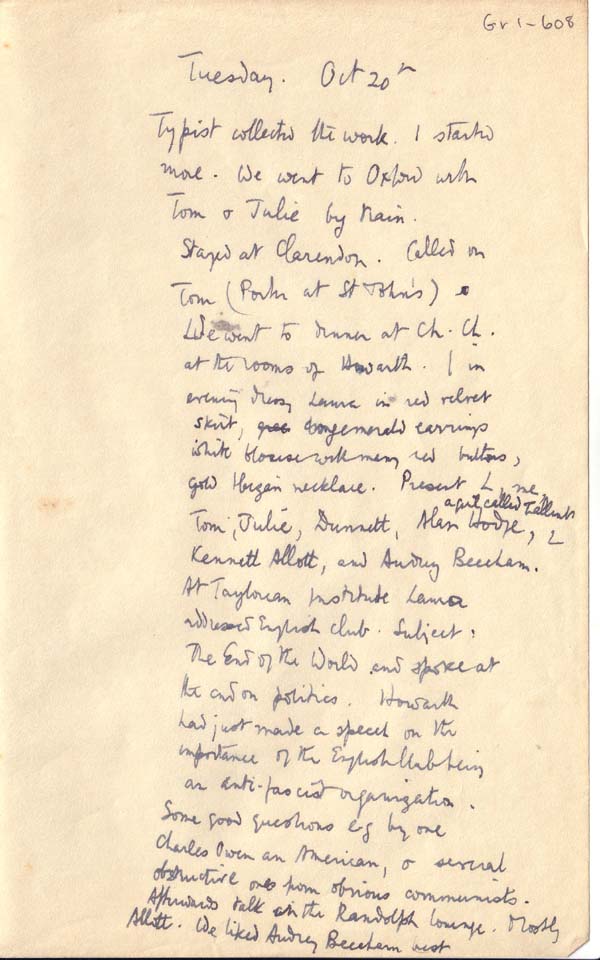 Gr 1-608
Tuesday. Oct 20th
Typist collected the work. I started
more. We went to Oxford with
Tom & Julie by train.
Stayed at Clarendon. Called on
Tom (Porter at St John's)
We went to dinner at Ch. Ch.
at the rooms of Howarth. I in
evening dress, Laura in red velvet
skirt, long emerald earrings
white blouse with many red buttons,
gold necklace. Present L, me,
a girl called Tallents
Tom, Julie, Dunnett, Alan Hodge, 2
Kennett Allott, and Audrey Beecham.
At Taylorian Institute Laura
addressed English club. Subject:
The End of the World and spoke at
the end on politics. Howarth
had just made a speech on the
importance of the English Club being
an anti-fascist organization.
Some good questions eg by one
Charles Owen an American, & several
obstructive ones from obvious communists.
Afterwards talk in the Randolph lounge. Mostly
Allott. We liked Audrey Beecham best